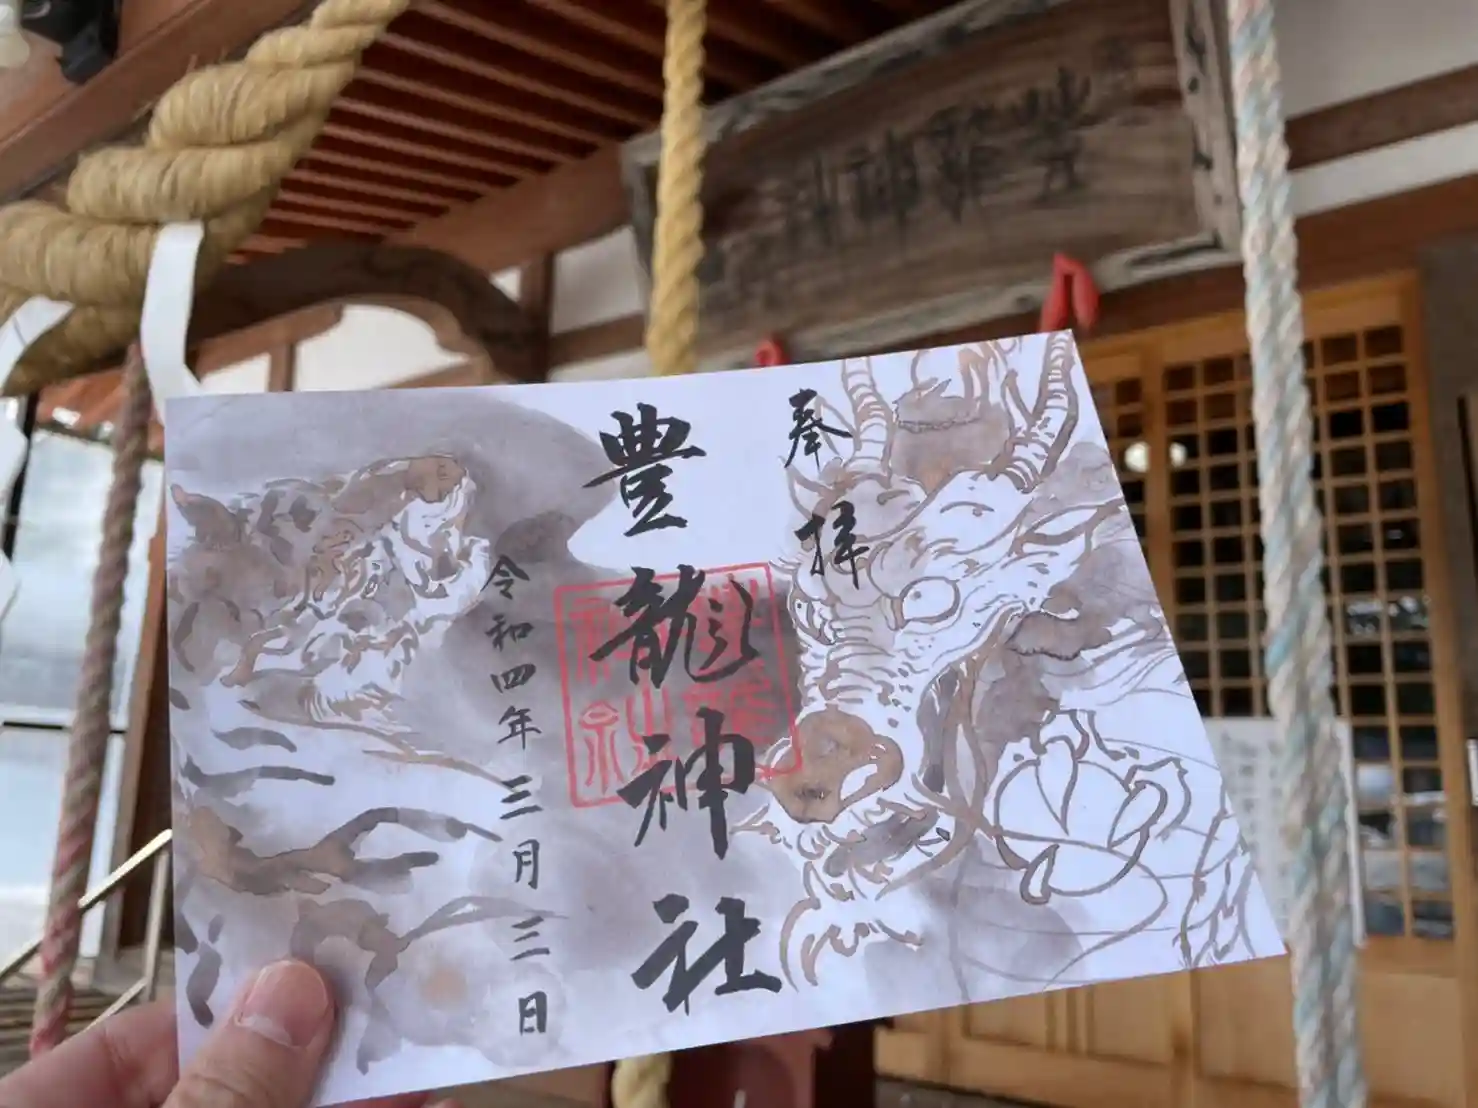 豊龍神社
奉拝
豊龍神社
令和四年三月三日